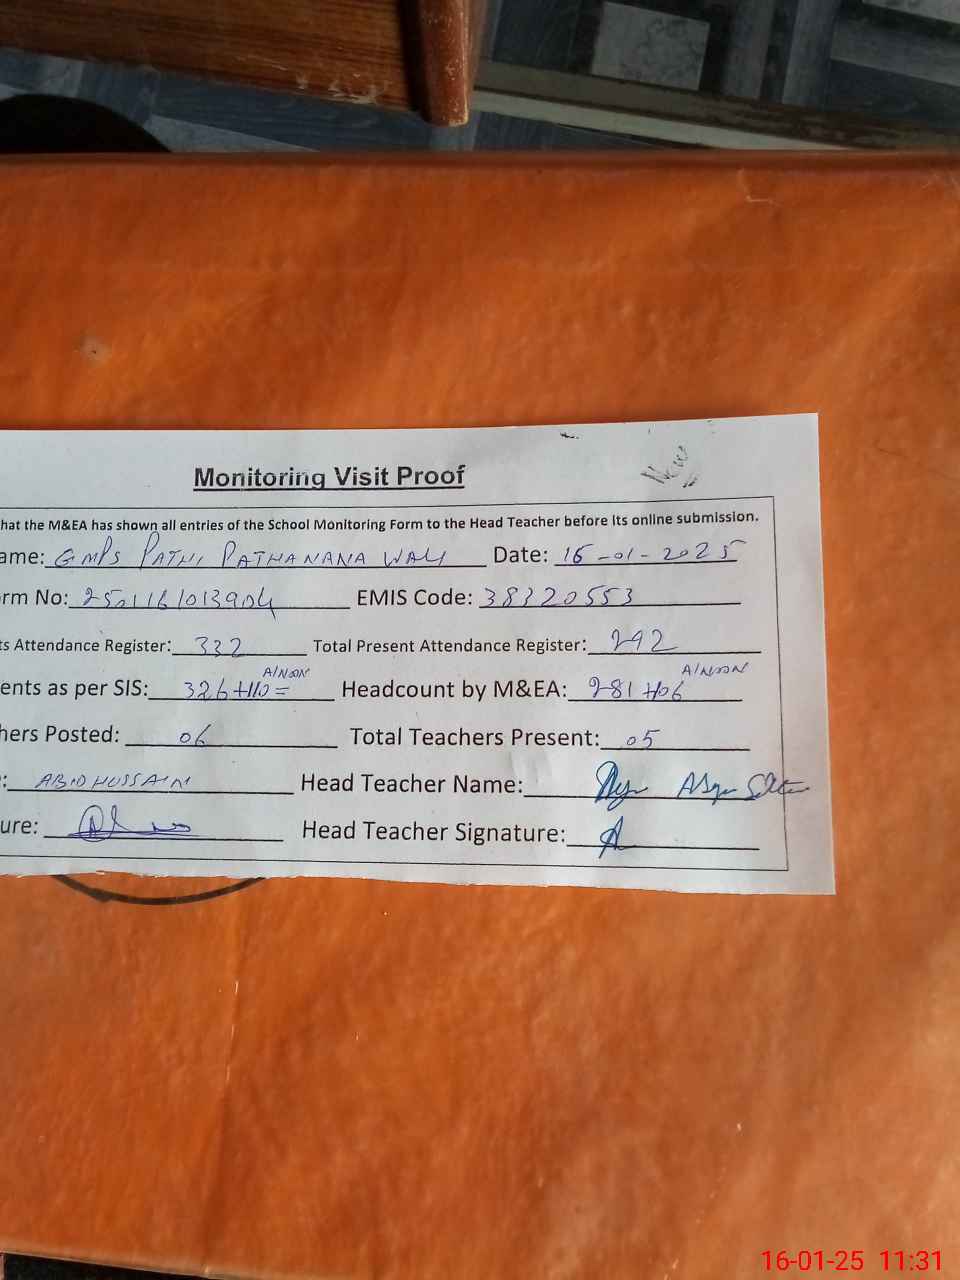 New
Monitoring Visit Proof
hat the M&EA has shown all entries of the School Monitoring Form to the Head Teacher before its online submission.
ame: GMPS PATHI PATHANANA WALI Date: 16-01-2025
rm No: EMIS Code: 38320553
ts Attendance Register: 332 Total Present Attendance Register: 292
A/NOON A/NOON
ents as per SIS: 326+110= Headcount by M&EA: 281+106
hers Posted: 06 Total Teachers Present: 05
: ABID HUSSAIN Head Teacher Name:
ure: Head Teacher Signature:
16-01-25 11:31